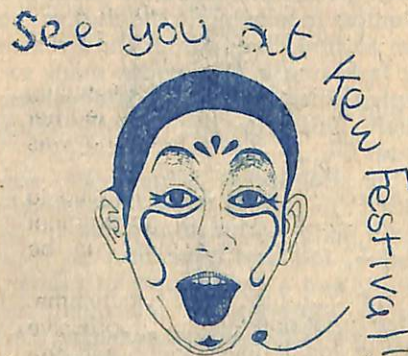 See you at
Kew Festival!